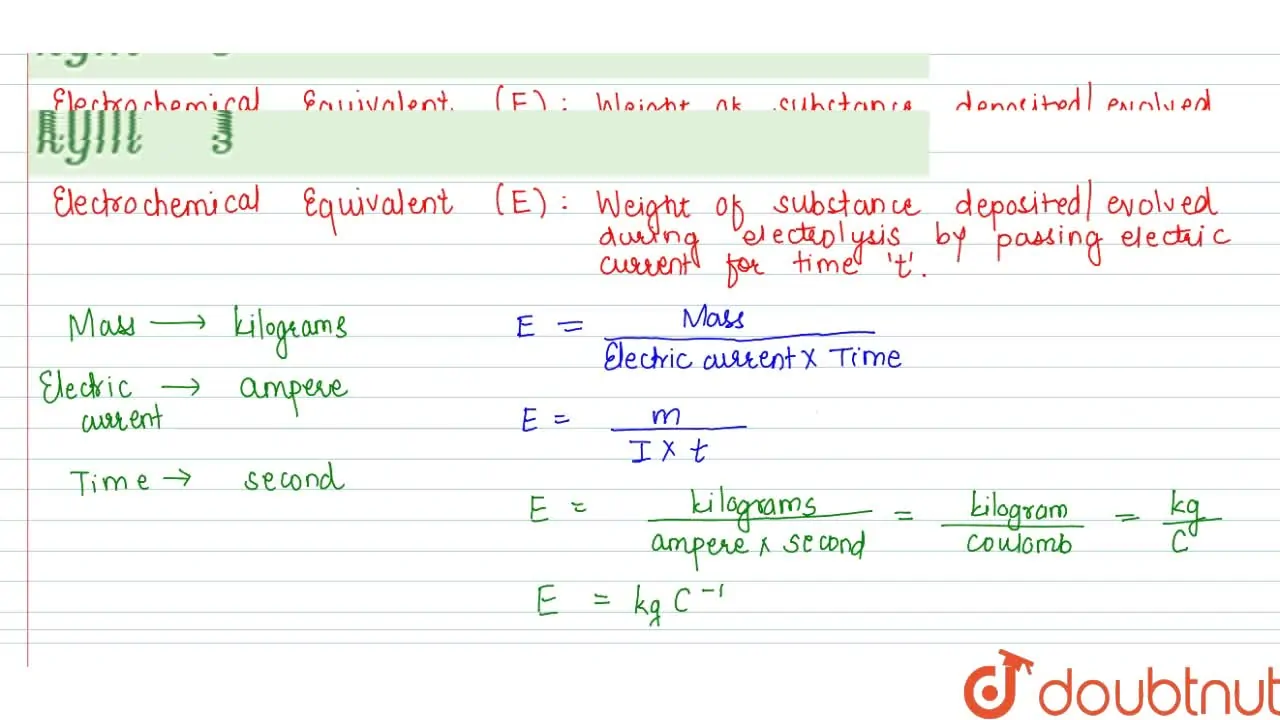 Electrochemical Equivalent (E): Weight of substance deposited/evolved
Electrochemical Equivalent (E): Weight of substance deposited/evolved
during electrolysis by passing electric
current for time 't'.
Mass → kilograms
E = Mass / Electric current × Time
Electric current → ampere
E = m / I × t
Time → second
E = kilograms / ampere × second = kilogram / coulomb = kg / C
E = kg C⁻¹
doubtnut